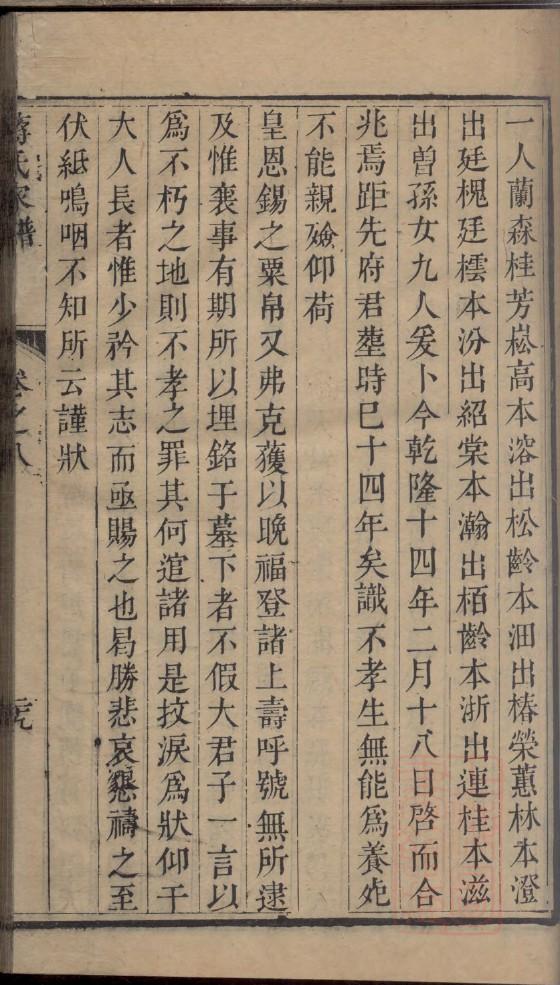 一人蘭森桂芳崧高本溶出松齡本沺出椿榮蕙林本澄
出廷槐廷橒本汾出紹棠本瀚出栢齡本浙出連桂本滋
出曾孫女九人爰卜今乾隆十四年二月十八日啓而合
兆焉距先府君塟時巳十四年矣識不孝生無能爲養死
不能親殮仰荷
皇恩錫之粟帛又弗克獲以晩福登諸上壽呼號無所逮
及惟襄事有期所以埋銘于墓下者不假大君子一言以
爲不朽之地則不孝之罪其何逭諸用是抆淚爲狀仰干
大人長者惟少矜其志而亟賜之也曷勝悲哀懇禱之至
伏紙鳴咽不知所云謹狀
蔣氏家譜 卷之八